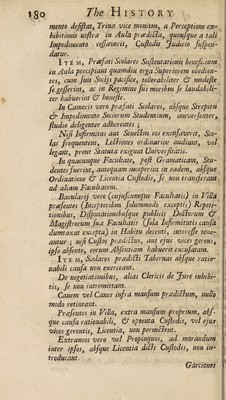 180 The HISTORY
mento desistat, Trina vice monitus, a Perceptione ex-
hibitionis nostræ in Aula prædicta, quousque a tali
Impedimento cessaverit, Custodis Judicio suspen-
datur.
ITEM, Præfati Scolares Sustentationis beneficium
in Aula percipiant quamdiu erga Superiorem obedien-
ter, cum suis Sociis pacifice, tolerabiliter & modeste
se gesserint, ac in Regimine sui moribus se laudabili-
ter habuerint & honeste.
In Cameris vero præfati Scolares, absque Strepitu
& Impedimento Sociorum Studentium, conversenter,
studio diligenter adhærentes
Nisi Infirmitas aut Senectus eos excusaverit, Sco-
las frequentent, Lectiones ordinarias audiant, vel
legant, prout Statuta exigunt Universitatis.
In quacunque Facultate, post Gramaticam, Stu-
dentes fuerint, antequam inceperint in eadem, absque
Ordinatione & Licentia Custodis, se non transferant
ad aliam Facultatem.
Bacularij vero (cujuscumque Facultatis) in Villa
præsentes (Inceptoribus solummodo exceptis) Repeti-
tionibus, Disputationibusque publicis Doctorum &
Magistrorum suæ Facultatis (sola Infirmitatis causa
dumtaxat excepta) in Habitu decenti, interesse tene-
antur; nisi Custos prædictus, aut ejus vices gerens,
ipso absente, eorum Absentiam habuerit excusatam.
ITEM, Scolares prædicti Tabernas absque ratio-
nabili causa non exerceant.
De negotiationibus, alias Clericis de Jure inhibi-
tis, se non intromittant.
Canem vel Canes infra mansum prædictum, nullo
modo retineant.
Præsentes in Villa, extra mansum proprium, abs-
que causa rationabili, & optenta Custodis, vel ejus
vices gerentis, Licentia, non pernoctent.
Extraneos vero vel Propinquos, ad morandum
inter ipsos, absque Licentia dicti Custodis, non in-
troducant.
Garciones